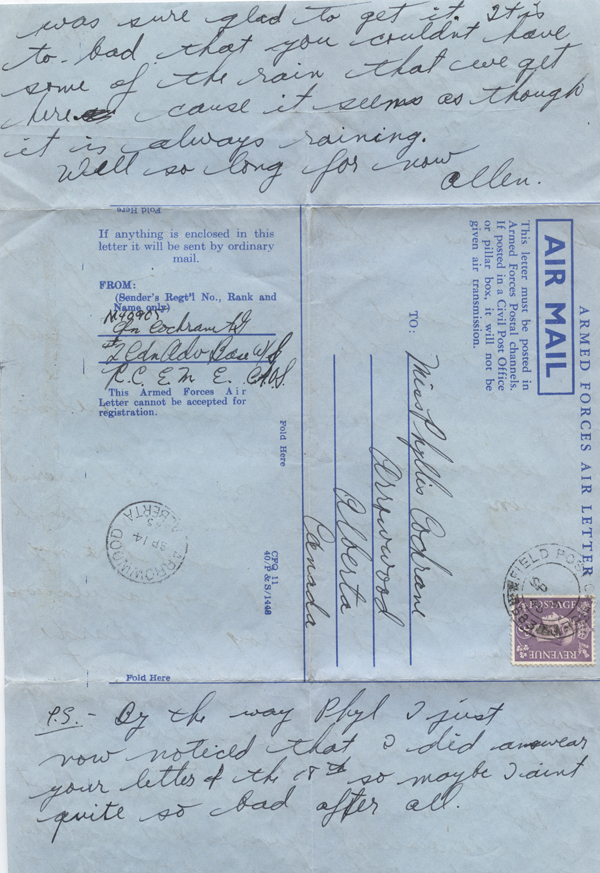 was sure glad to get it. It is
to bad that you couldnt have
some of the rain that we get
here cause it seems as though
it is always raining.
Well so long for now
Allen.
Fold Here
If anything is enclosed in this
letter it will be sent by ordinary
mail.
FROM:
(Sender's Regt'l No., Rank and
Name only)
Cochrane
#2 Cdn Adv Base W/S
R.C.E.M.E. C.A.O.S.
This Armed Forces Air
Letter cannot be accepted for
registration.
Fold Here
ARROWWOOD
SP 14
45
ALBERTA
CFQ 11
40/P & S/1448
Fold Here
ARMED FORCES AIR LETTER
AIR MAIL
This letter must be posted in
Armed Forces Postal channels.
If posted in a Civil Post Office
or pillar box, it will not be
given air transmission.
TO:
Miss Phyllis Cochrane
Arrowwood
Alberta
Canada
FIELD POST
SP
POSTAGE
REVENUE
P.S. - By the way Phyl I just
now noticed that I did answear
your letter of the 18th so maybe I aint
quite so bad after all.